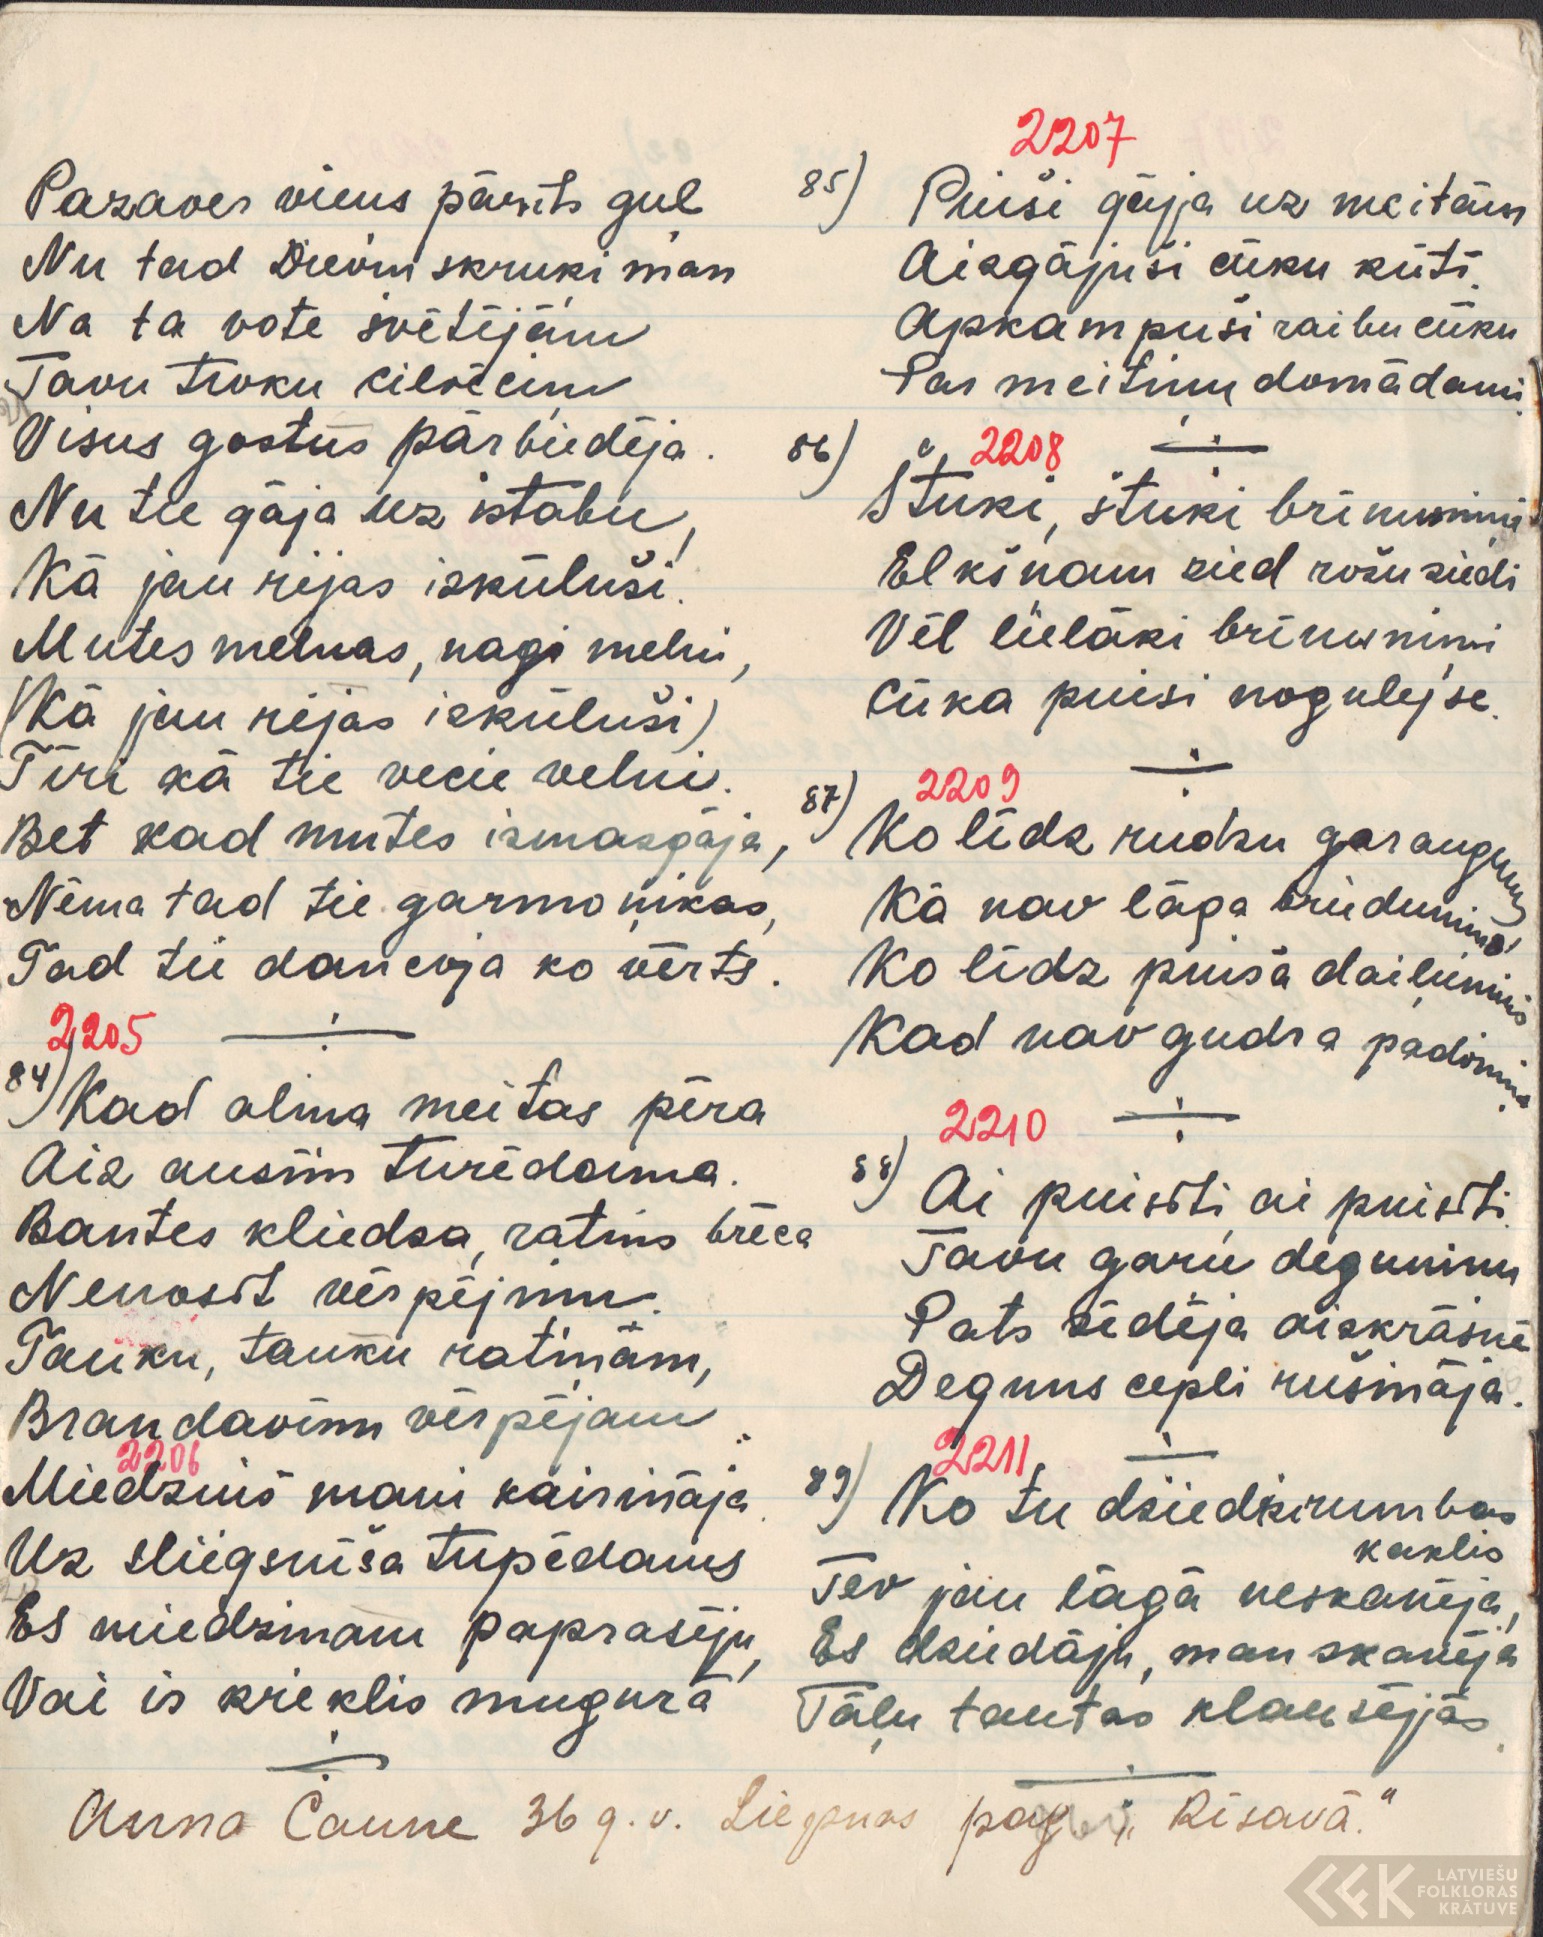 Pazaver viens pārīts guļ
Nu tad Dieviņ skruki man
Na ta vote svētējām
Tavu troku cilvēciņ
Visus gostus pārbiedēja.
Nu tie gāja uz istabu,
Kā jau rijas izkūluši.
Mutes melnas, nagi melni,
(Kā jau rijas izkūluši)
Tīri kā tie vecie velni.
Bet kad mutes izmazgāja,
Nēma tad tie garmoņikas,
Tad tie dancoja ko vērts.
2205
84) Kad olma meitas pēra
Aiz ausīm turēdama.
Bantes kliedza, ratiņs brēca
Nenosit vērpējiņu.
Tauku, tauku ratiņam,
Brandavīnu vērpējam
2206
Miedziņš mani kairināja
Uz sliegsnīša tupēdams
Es miedziņam paprasēju,
Vai ir kriekls mugurā
Anna Caune 36 g. v. Liepnas pag. "Rīsavā."
2207
85) Puiši gāja uz meitām
Aizgājuši cūku kūtī.
Apkampuši raibu cūku
Par meitiņu domādami.
86) 2208
Štuki, štuki brīnumiņi
Elkšņam zied rožu ziedi
Vēl lielāki brīnumiņi
Cūka puisi nogulējse.
87) 2209
Ko līdz rudzu garaugums
Kā nav lāga briedumiņa!
Ko līdz puiša dailumiņis
Kad nav gudra padomiņa.
2210
88) Ai puisīti, ai puisīti
Tavu garu deguniņu
Pats sēdēja aizkrāsnē
Deguns cepli rušināja.
2211
89) Ko tu dziedi zirumbas
kaklis
Tev jau lāgā neskanēja,
Es dziedāju, man skanēja
Tāļu tautas klausējās.
LATVIEŠU
FOLKLORAS
KRĀTUVE